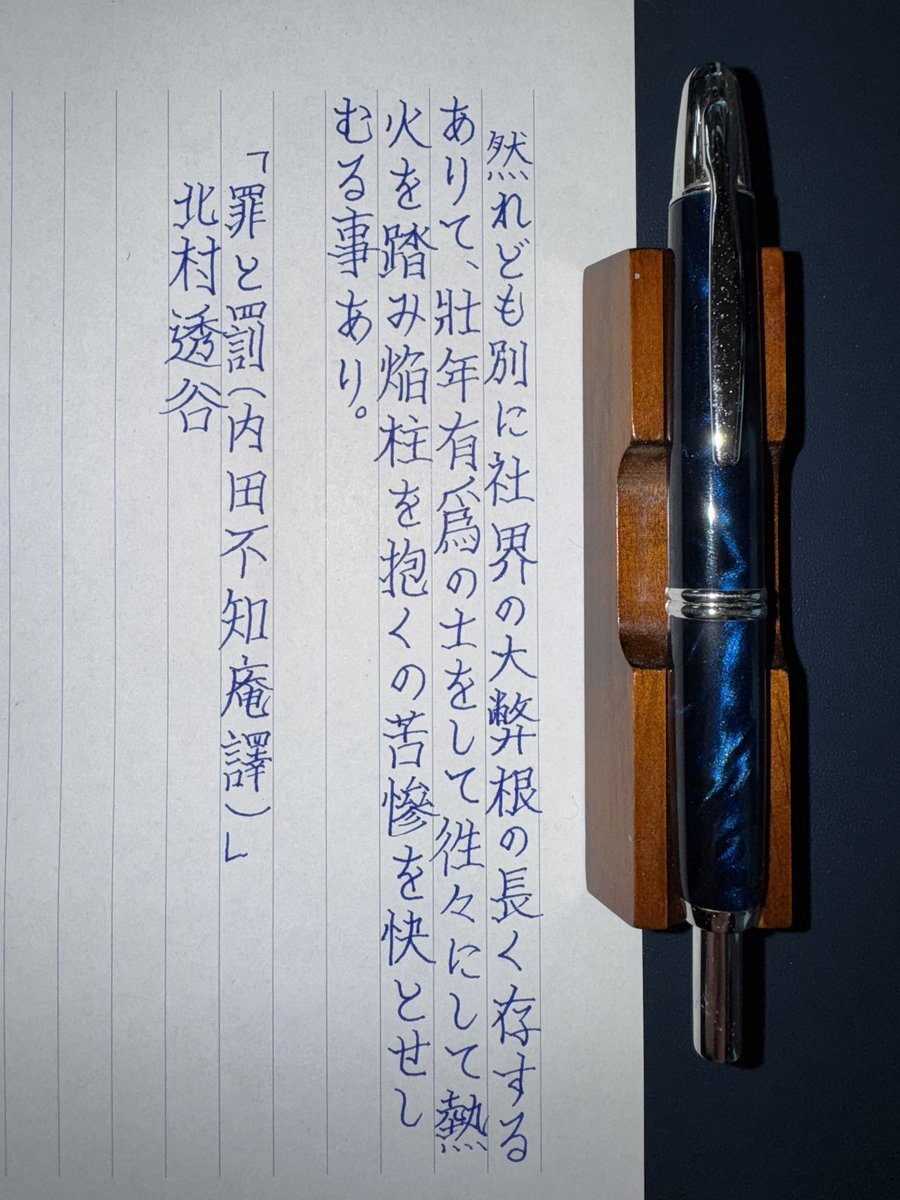 然れども別に社界の大弊根の長く存する
ありて、壯年有爲の士をして徃々にして熱
火を踏み焔柱を抱くの苦惨を快とせし
むる事あり。
「罪と罰(内田不知庵譯)」
北村透谷